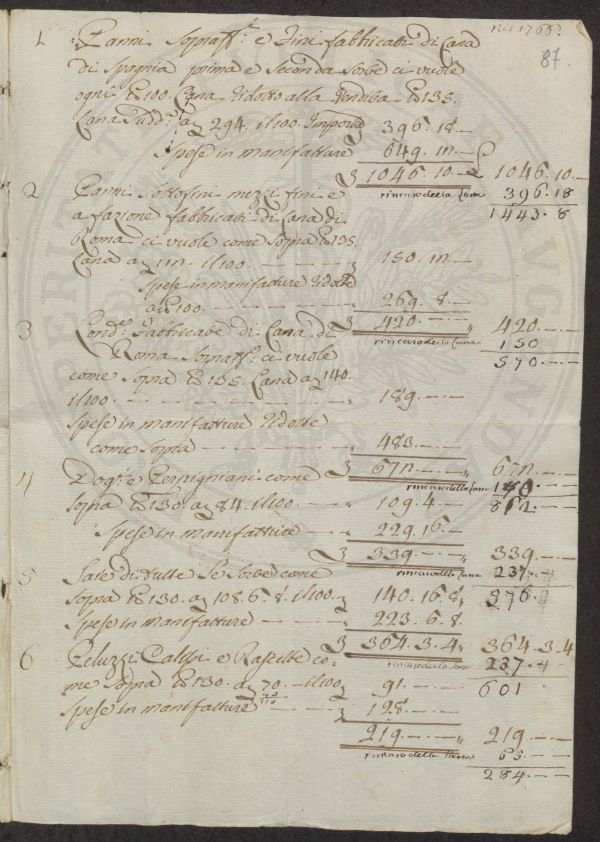 nel 1766:
87.
1 Panni Sopraff: e Fini fabbricati di Lana
di Spagnia prima e seconda Sorte ci vuole
ogni £ 100. Lana ridotto alla Vendita £ 135.
Lana Sudd: a 294. il 100. Importa 396. 18. —
Spese in manifatture 649. 12. —
1046. 10. — 1046. 10. —
rincaro della Lana 396. 18
1443. 8
2 Panni Sottofini mezzi fini e
a fazione fabbricati di Lana di
Roma ci vuole come Sopra £ 135.
Lana a 112. il 100. 150. 12. —
Spese in manifatture ridotte
a £ 100. 269. 8. —
420. — 420. —
rincaro della Lana 150
570. —
3 Cond: Fabbricate di Lana di
Roma Sopraff: ci vuole
come Sopra £ 135. Lana a 140.
il 100. 189. —
Spese in manifatture ridotte
come Sopra 483. —
672. — 672. —
rincaro della Lana
862. —
4 e Perpigniani come
Sopra £ 130. a 84. il 100. 109. 4. —
Spese in manifattice 229. 16. —
339. — 339. —
rincaro della Lana 237. —
576. —
5 Saie di tutte le Sorte come
Sopra £ 130. a 108. 6. 8. il 100. 140. 16. 8.
Spese in manifatture 223. 6. 8.
364. 3. 4 364. 3. 4
rincaro della Lana 237. —
601
6 Peluzzi Calisi e Rascette co-
me Sopra £ 130. a 70. il 100. 91. —
Spese in manifatture 128. —
219. — 219. —
rincaro della Lana 65. —
284. —